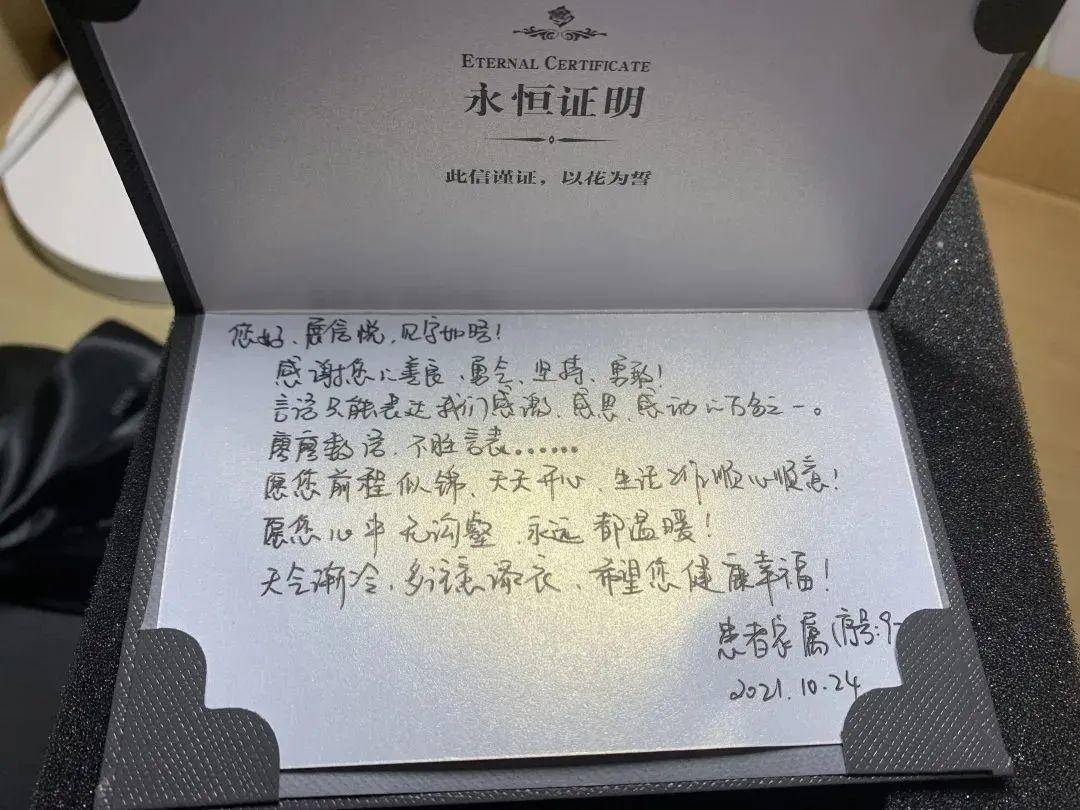 ETERNAL CERTIFICATE
永恒证明
此信谨证，以花为誓
您好、展信悦，见字如晤！
感谢您的善良、勇气、坚持、勇敢！
言语只能表达我们感激、感恩、感动的万分之一。
寥寥数语，不胜言表……
愿您前程似锦、天天开心、生活工作顺心顺意！
愿您心中无沟壑，永远都温暖！
天气渐冷，多注意添衣、希望您健康幸福！
患者家属（序号:9-
2021.10.24